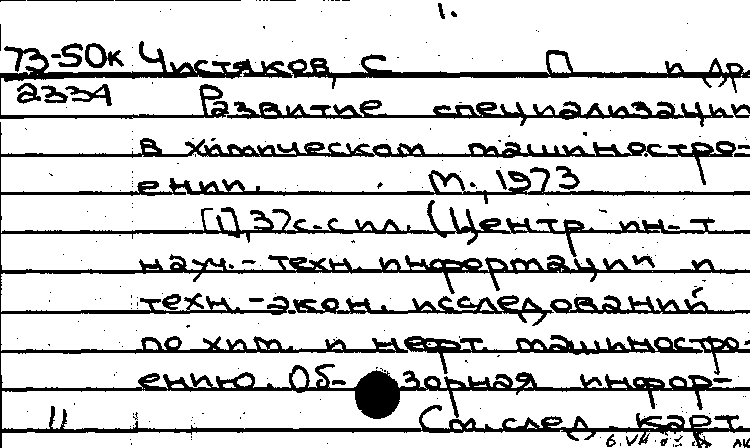 1.
73-50к Чистяков, С П и др.
2334 Развитие специализации
в химическом машиностро-
ении. М., 1973
[1], 37с. с ил. (Центр. ин-т
науч.-техн. информации и
техн.-экон. исследований
по хим. и нефт. машиностро-
ению. Об- зорная инфор-
11 См. след. карт.